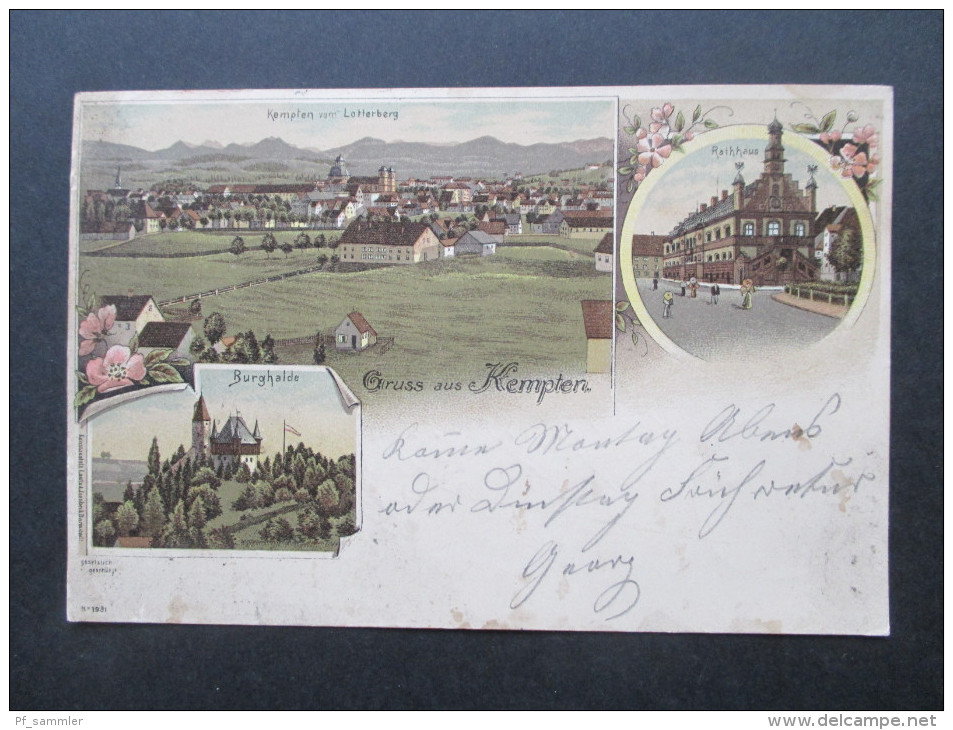 Kempten vom Lotterberg
Rathhaus
Burghalde
Gruss aus Kempten.
Kom̅e Montag Abens
oder Dinstag Früh retur
Georg
gesetzlich
geschützt
No 1931
Pf_sammler
www.delcampe.net